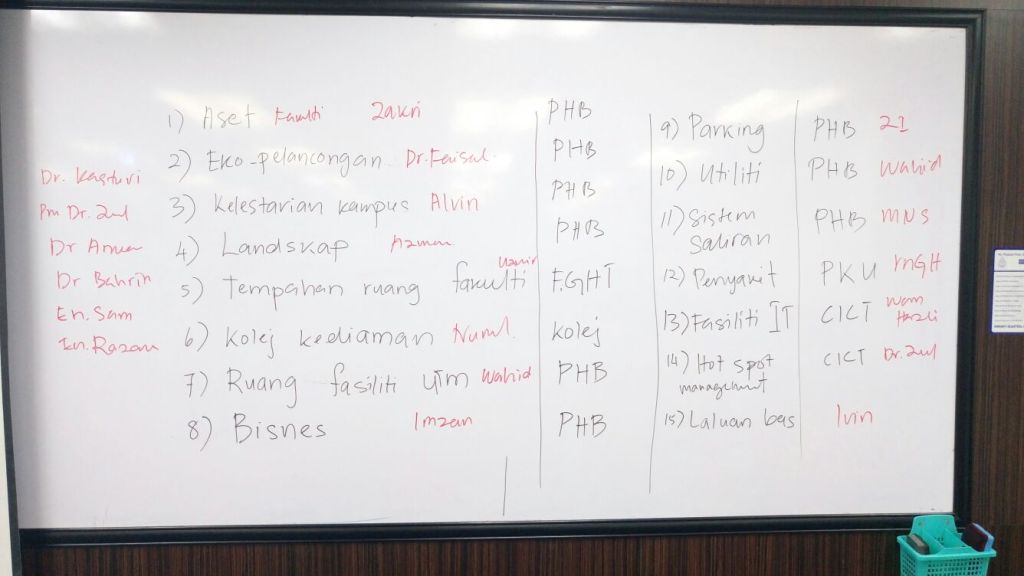 Dr. Kasturi
Pm Dr. Zul
Dr Anuar
Dr Bahrin
En. Sam
En. Razam
1) Aset Fakulti Zakri PHB
2) Eko-pelancongan Dr. Faisal. PHB
3) Kelestarian kampus Alvin PHB
4) Landskap Azman PHB
5) Tempahan ruang fakulti F.GHT
6) Kolej kediaman Nurul Kolej
7) Ruang fasiliti UTM Wahid PHB
8) Bisnes Imzan PHB
9) Parking PHB
10) Utiliti PHB Wahid
11) Sistem PHB MNS
Saliran
12) Penyakit PKU
13) Fasiliti IT CICT Wan
Hazli
14) Hot spot CICT Dr. Zul
management
15) Laluan bas Ivin